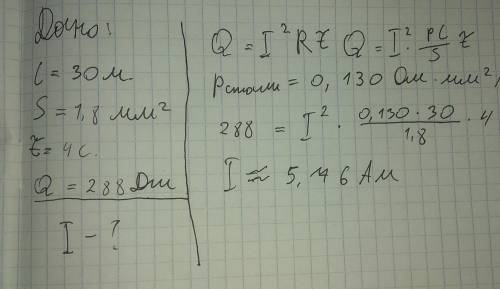 Дано:
l = 30 м
S = 1,8 мм²
t = 4 с.
Q = 288 Дж
I - ?
Q = I² R t Q = I² · ρl/S t
ρстали = 0,130 Ом · мм²/
288 = I² · 0,130 · 30/1,8 · 4
I ≈ 5,76 Ам